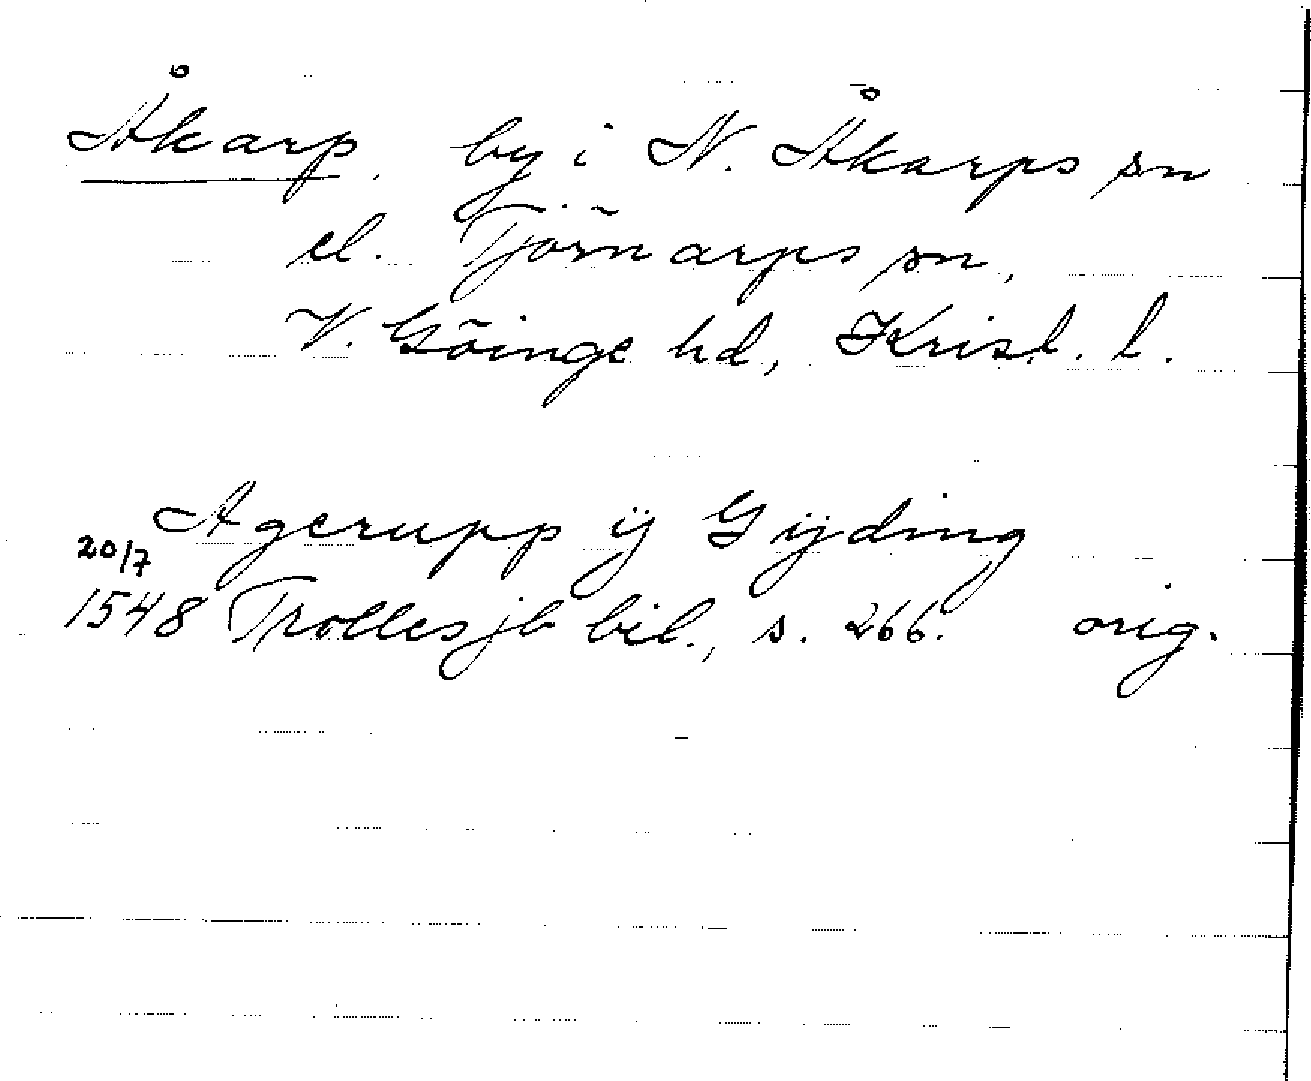 Åkarp, by i N. Åkarps sn
el. Tjörnarps sn,
V. Göinge hd, Krist. l.
Agerupp ÿ Gÿding
20/7
1548 Trollesjb bil., s. 266. orig.